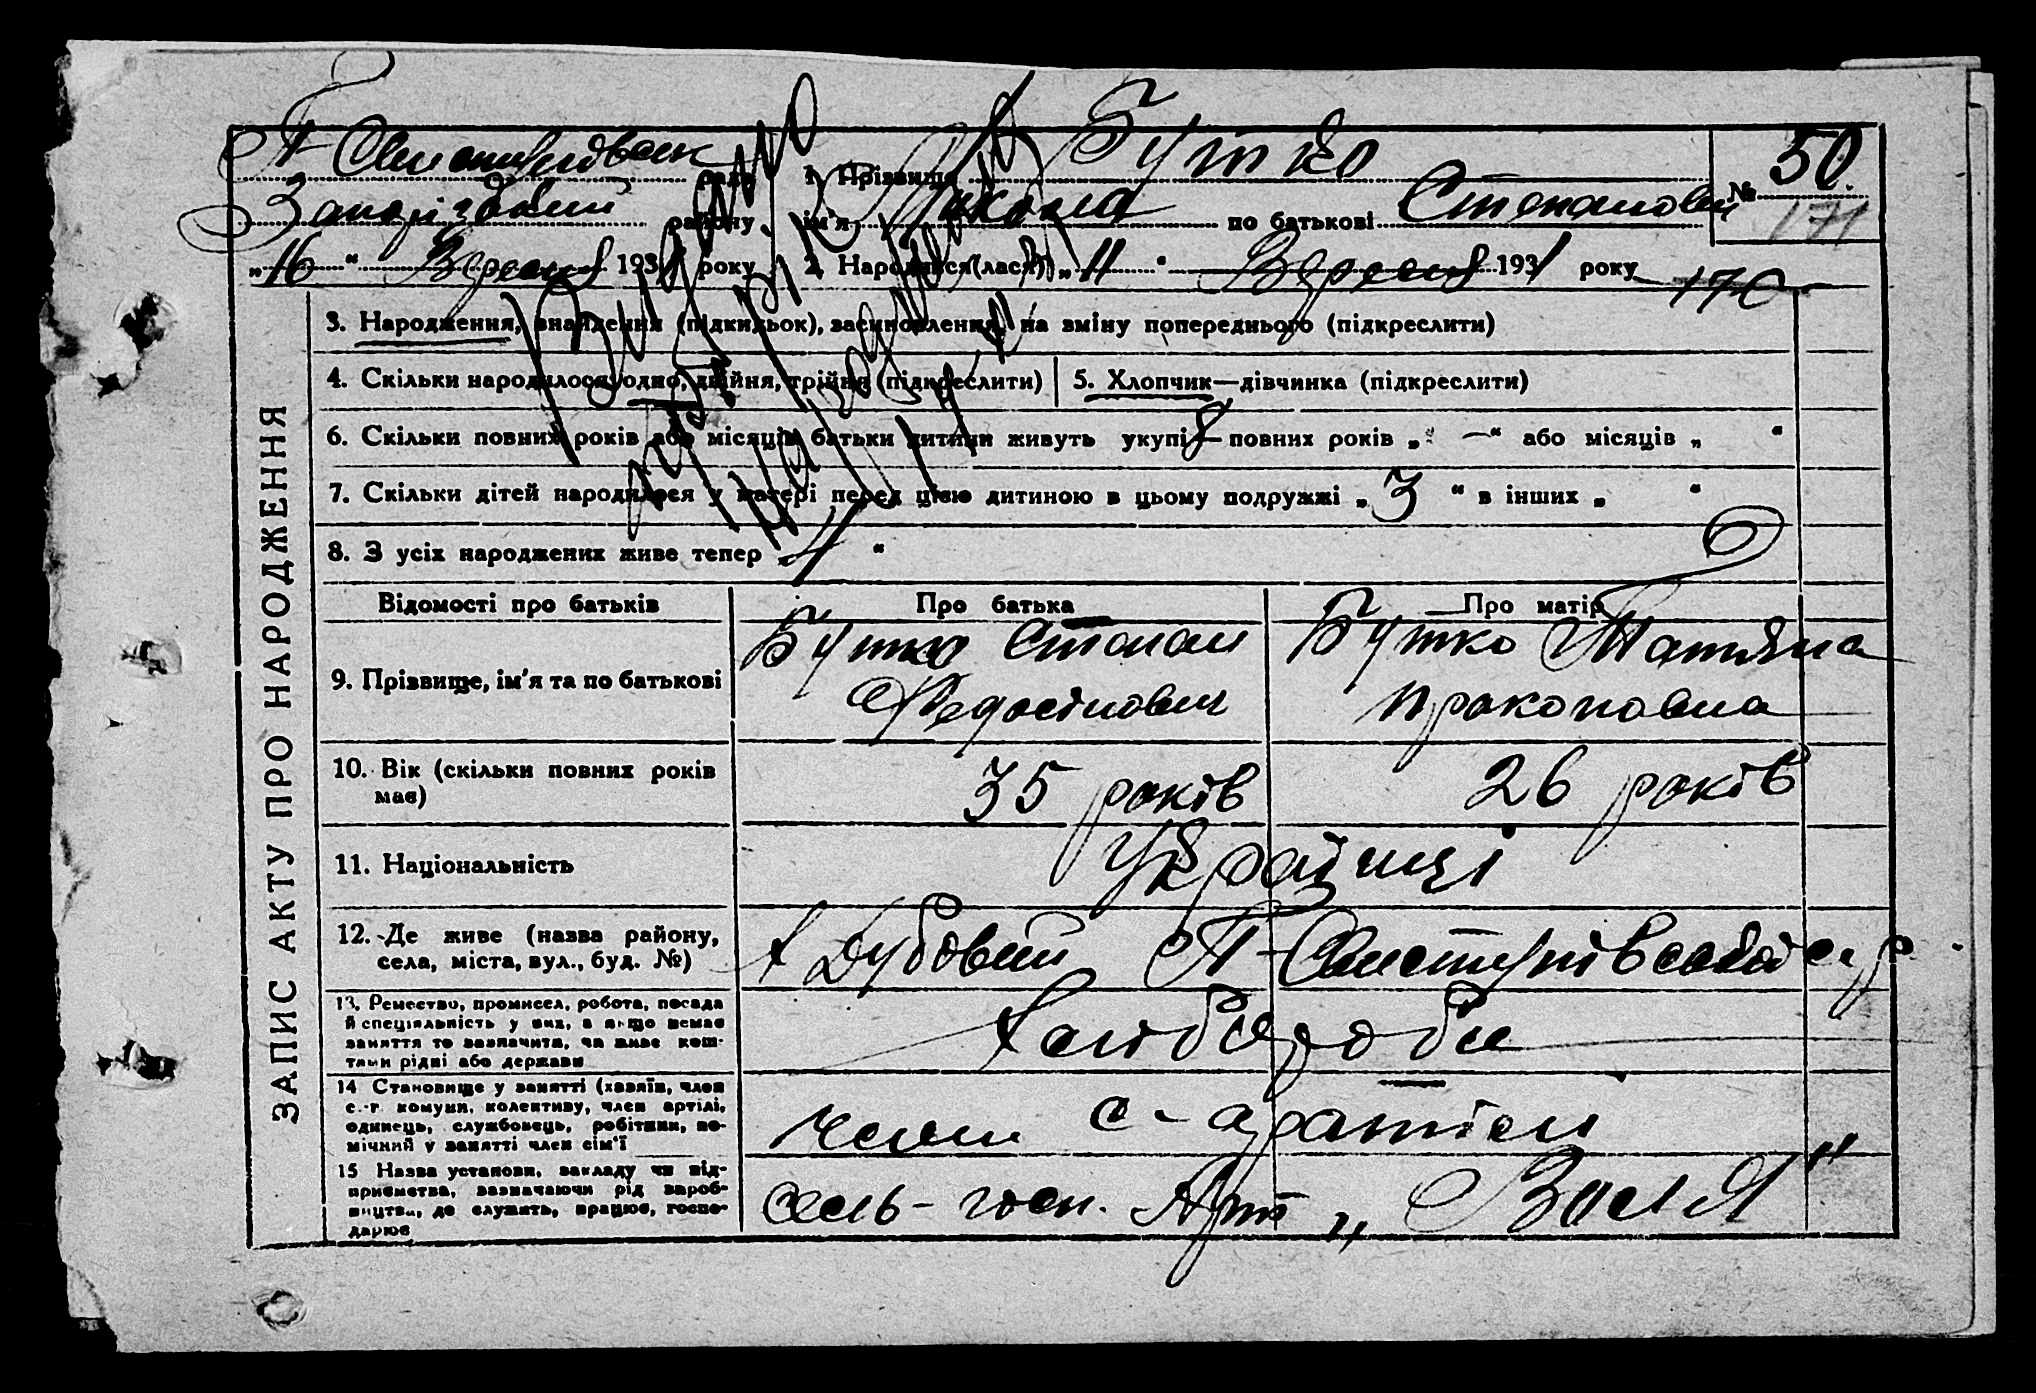 Свистунівськ рада
1. Прізвище Бутко
№ 50
171
Запорізький району
ім'я Микола по батькові Степанович
„16“ Вересня 1931 року
2. Народився(лася) „11“ Вересня 1931 року
170
ЗАПИС АКТУ ПРО НАРОДЖЕННЯ
3. Народження, знайдення (підкидьок), засиновлення, на зміну попереднього (підкреслити)
4. Скільки народилося: одно, двійня, трійня (підкреслити)
5. Хлопчик—дівчинка (підкреслити)
6. Скільки повних років або місяців батьки дитини живуть укупі 8 повних років „ — “ або місяців „ “
7. Скільки дітей народилося у матері перед цією дитиною в цьому подружжі „ 3 “ в інших „ “
8. З усіх народжених живе тепер 4 “
Відомості про батьків
Про батька
Про матір
9. Прізвище, ім'я та по батькові
Бутко Степан
Федосіпович
Бутко Татьяна
Прокоповна
10. Вік (скільки повних років
має)
35 років
26 років
11. Національність
Українці
12. Де живе (назва району,
села, міста, вул., буд. №)
х Дубовий П-Свистунівської с. р
13. Ремество, промисел, робота, посада
й спеціяльність у них, а якщо немає
заняття то зазначити, чи живе кош-
тами рідні або держави
Хлібороби
14 Становище у занятті (хазяїн, член
с.-г. комуни, колективу, член артілі,
одинець, службовець, робітник, по-
мічний у занятті член сім'ї
члени с-г артіли
15 Назва установи, закладу чи під-
приємства, зазначаючи рід вироб-
ництва, де служить, працює, госпо-
дарює
Сель-госп. Арт „